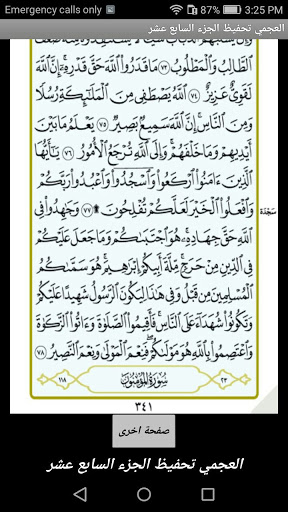 Emergency calls only 3:25 PM
العجمي تحفيظ الجزء السابع عشر
الطَّالِبُ وَالْمَطْلُوبُ ٧٣ مَا قَدَرُوا اللَّهَ حَقَّ قَدْرِهِ إِنَّ اللَّهَ
لَقَوِيٌّ عَزِيزٌ ٧٤ اللَّهُ يَصْطَفِي مِنَ الْمَلَائِكَةِ رُسُلًا
وَمِنَ النَّاسِ إِنَّ اللَّهَ سَمِيعٌ بَصِيرٌ ٧٥ يَعْلَمُ مَا بَيْنَ
أَيْدِيهِمْ وَمَا خَلْفَهُمْ وَإِلَى اللَّهِ تُرْجَعُ الْأُمُورُ ٧٦ يَا أَيُّهَا
الَّذِينَ آمَنُوا ارْكَعُوا وَاسْجُدُوا وَاعْبُدُوا رَبَّكُمْ
وَافْعَلُوا الْخَيْرَ لَعَلَّكُمْ تُفْلِحُونَ ۩ ٧٧ وَجَاهِدُوا فِي
سَجْدَة
اللَّهِ حَقَّ جِهَادِهِ هُوَ اجْتَبَاكُمْ وَمَا جَعَلَ عَلَيْكُمْ
فِي الدِّينِ مِنْ حَرَجٍ مِلَّةَ أَبِيكُمْ إِبْرَاهِيمَ هُوَ سَمَّاكُمُ
الْمُسْلِمِينَ مِنْ قَبْلُ وَفِي هَذَا لِيَكُونَ الرَّسُولُ شَهِيدًا عَلَيْكُمْ
وَتَكُونُوا شُهَدَاءَ عَلَى النَّاسِ فَأَقِيمُوا الصَّلَاةَ وَآتُوا الزَّكَاةَ
وَاعْتَصِمُوا بِاللَّهِ هُوَ مَوْلَاكُمْ فَنِعْمَ الْمَوْلَى وَنِعْمَ النَّصِيرُ ٧٨
٢٣ سُورَةُ الْمُؤْمِنُونَ ١١٨
٣٤١
صفحة اخرى
العجمي تحفيظ الجزء السابع عشر